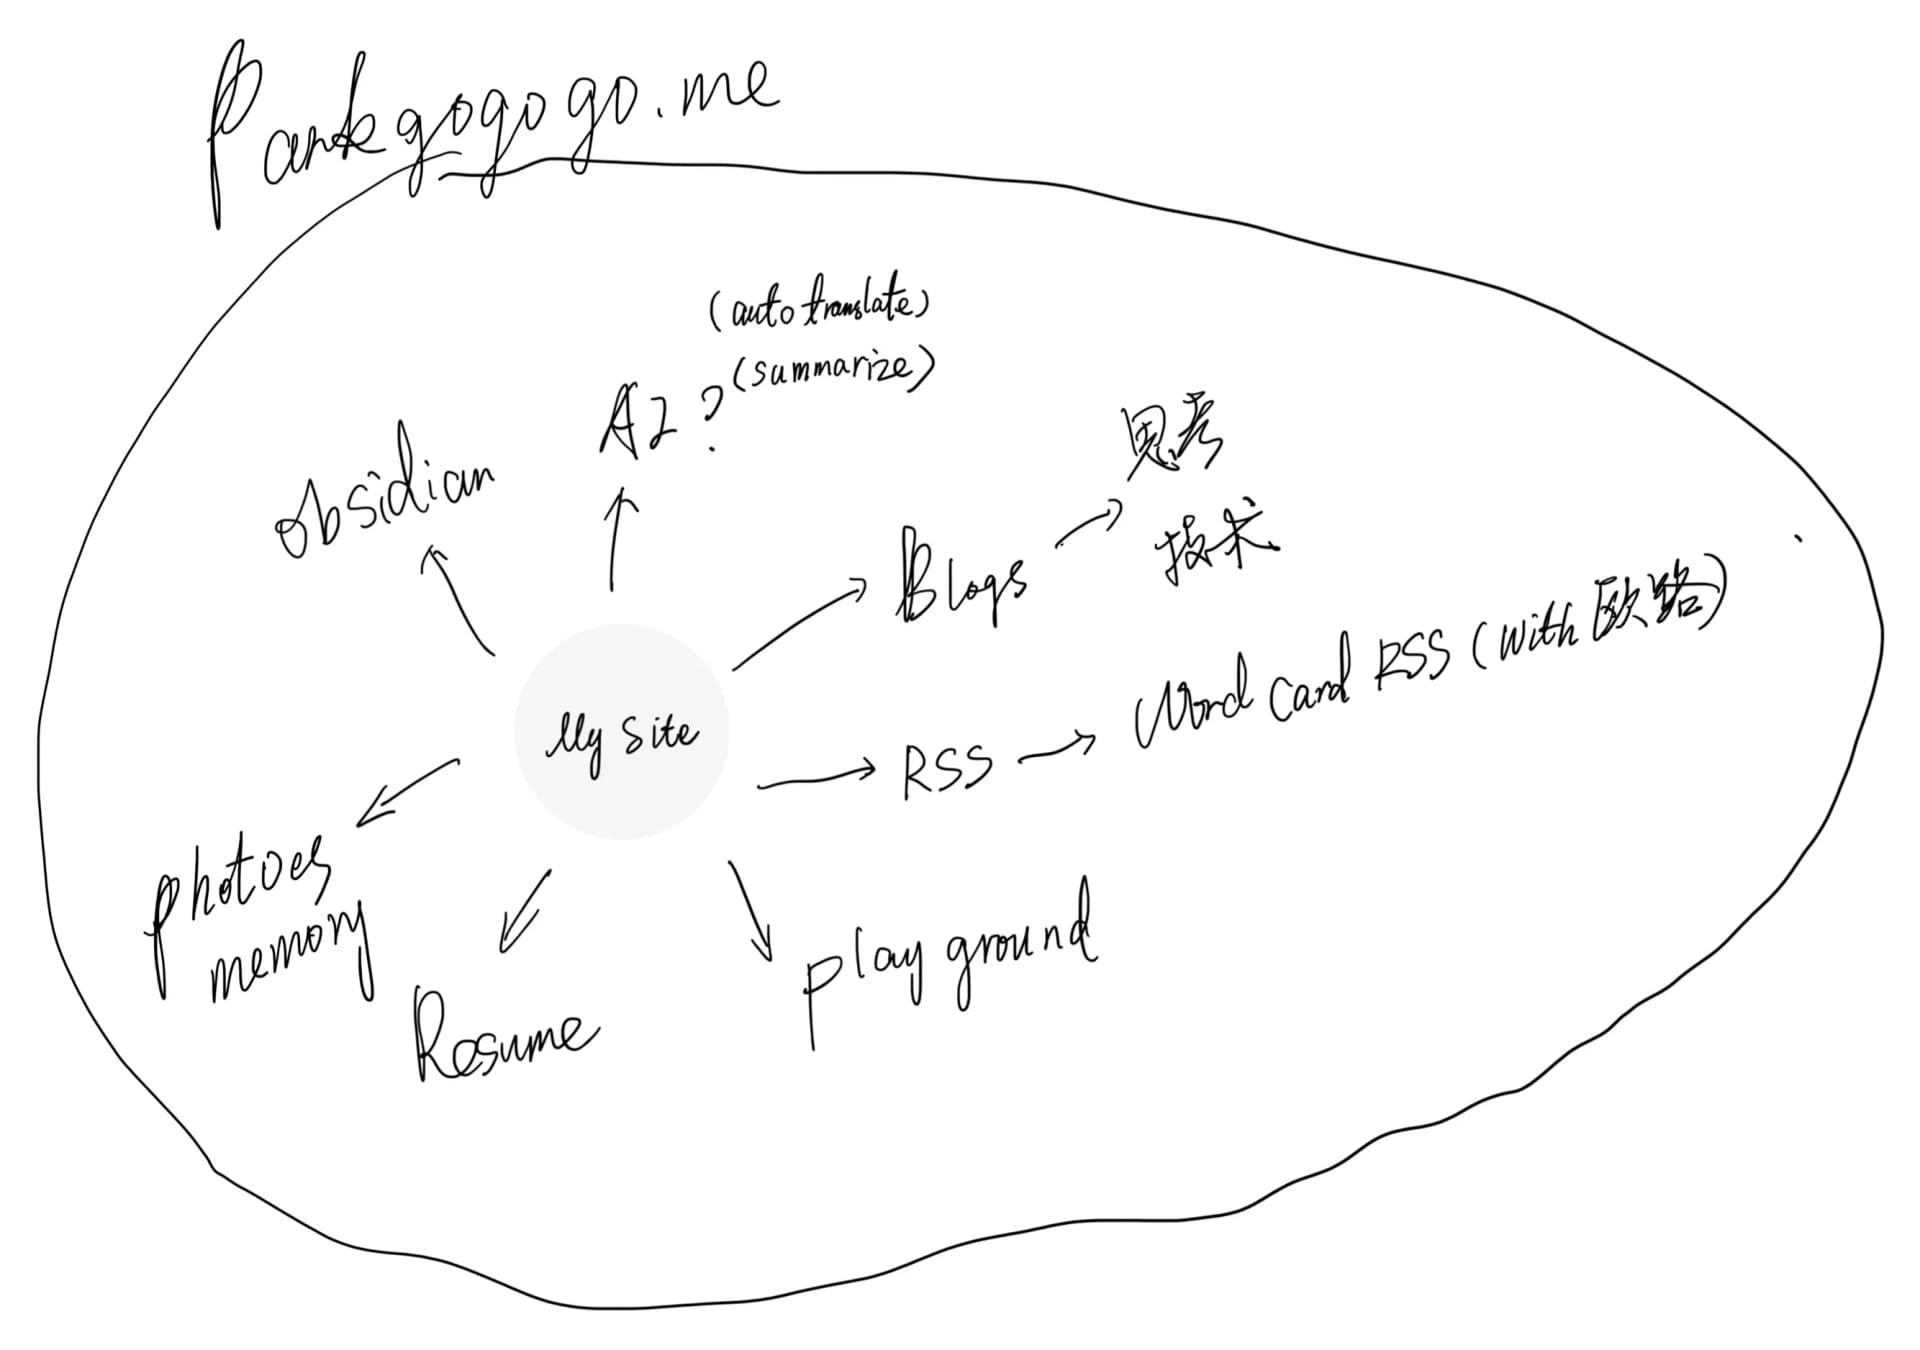 Pankgogogo.me
(auto translate)
(summarize)
AI?
obsidian
思考
技术
Blogs
Word Card RSS (with 欧路)
My Site
RSS
photoes
memory
Resume
play ground